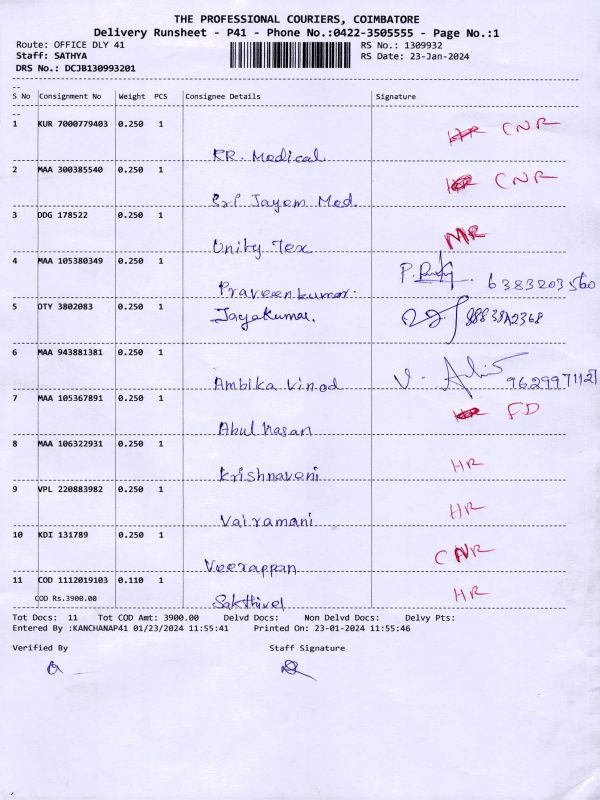 THE PROFESSIONAL COURIERS, COIMBATORE
Delivery Runsheet - P41 - Phone No.:0422-3505555 - Page No.:1
Route: OFFICE DLY 41 RS No.: 1309932
Staff: SATHYA RS Date: 23-Jan-2024
DRS No.: DCJB130993201
--
S No Consignment No Weight PCS Consignee Details Signature
--
1 KUR 7000779403 0.250 1 CNR
RR. Medical
2 MAA 300385540 0.250 1 CNR
Sri Jayem Med.
3 DDG 178522 0.250 1 MR
Unity Tex
4 MAA 105380349 0.250 1 P. 6383203560
Praveenkumar.
5 OTY 3802083 0.250 1 Jayakumar.
6 MAA 943881381 0.250 1
Ambika Vinod V. 9629971121
7 MAA 105367891 0.250 1 FD
Abul hasan
8 MAA 106322931 0.250 1 HR
Krishnaveni
9 VPL 220883982 0.250 1 HR
Vairamani
10 KDI 131789 0.250 1 CNR
Veerappan
11 COD 1112019103 0.110 1 HR
COD Rs.3900.00 Sakthivel
Tot Docs: 11 Tot COD Amt: 3900.00 Delvd Docs: Non Delvd Docs: Delvy Pts:
Entered By :KANCHANAP41 01/23/2024 11:55:41 Printed On: 23-01-2024 11:55:46
Verified By Staff Signature